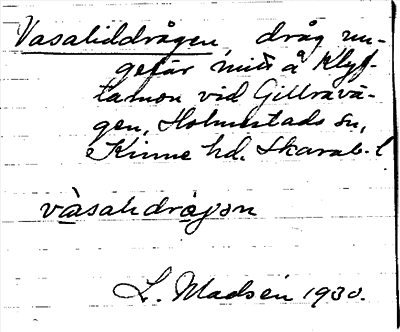 Vasaliddrågen, dråg un-
gefär mitt å Klyf-
tamon vid Gillravä-
gen, Holmestads sn,
Kinne hd. Skarab. l
vasalidrågən
L. Madsén 1930.